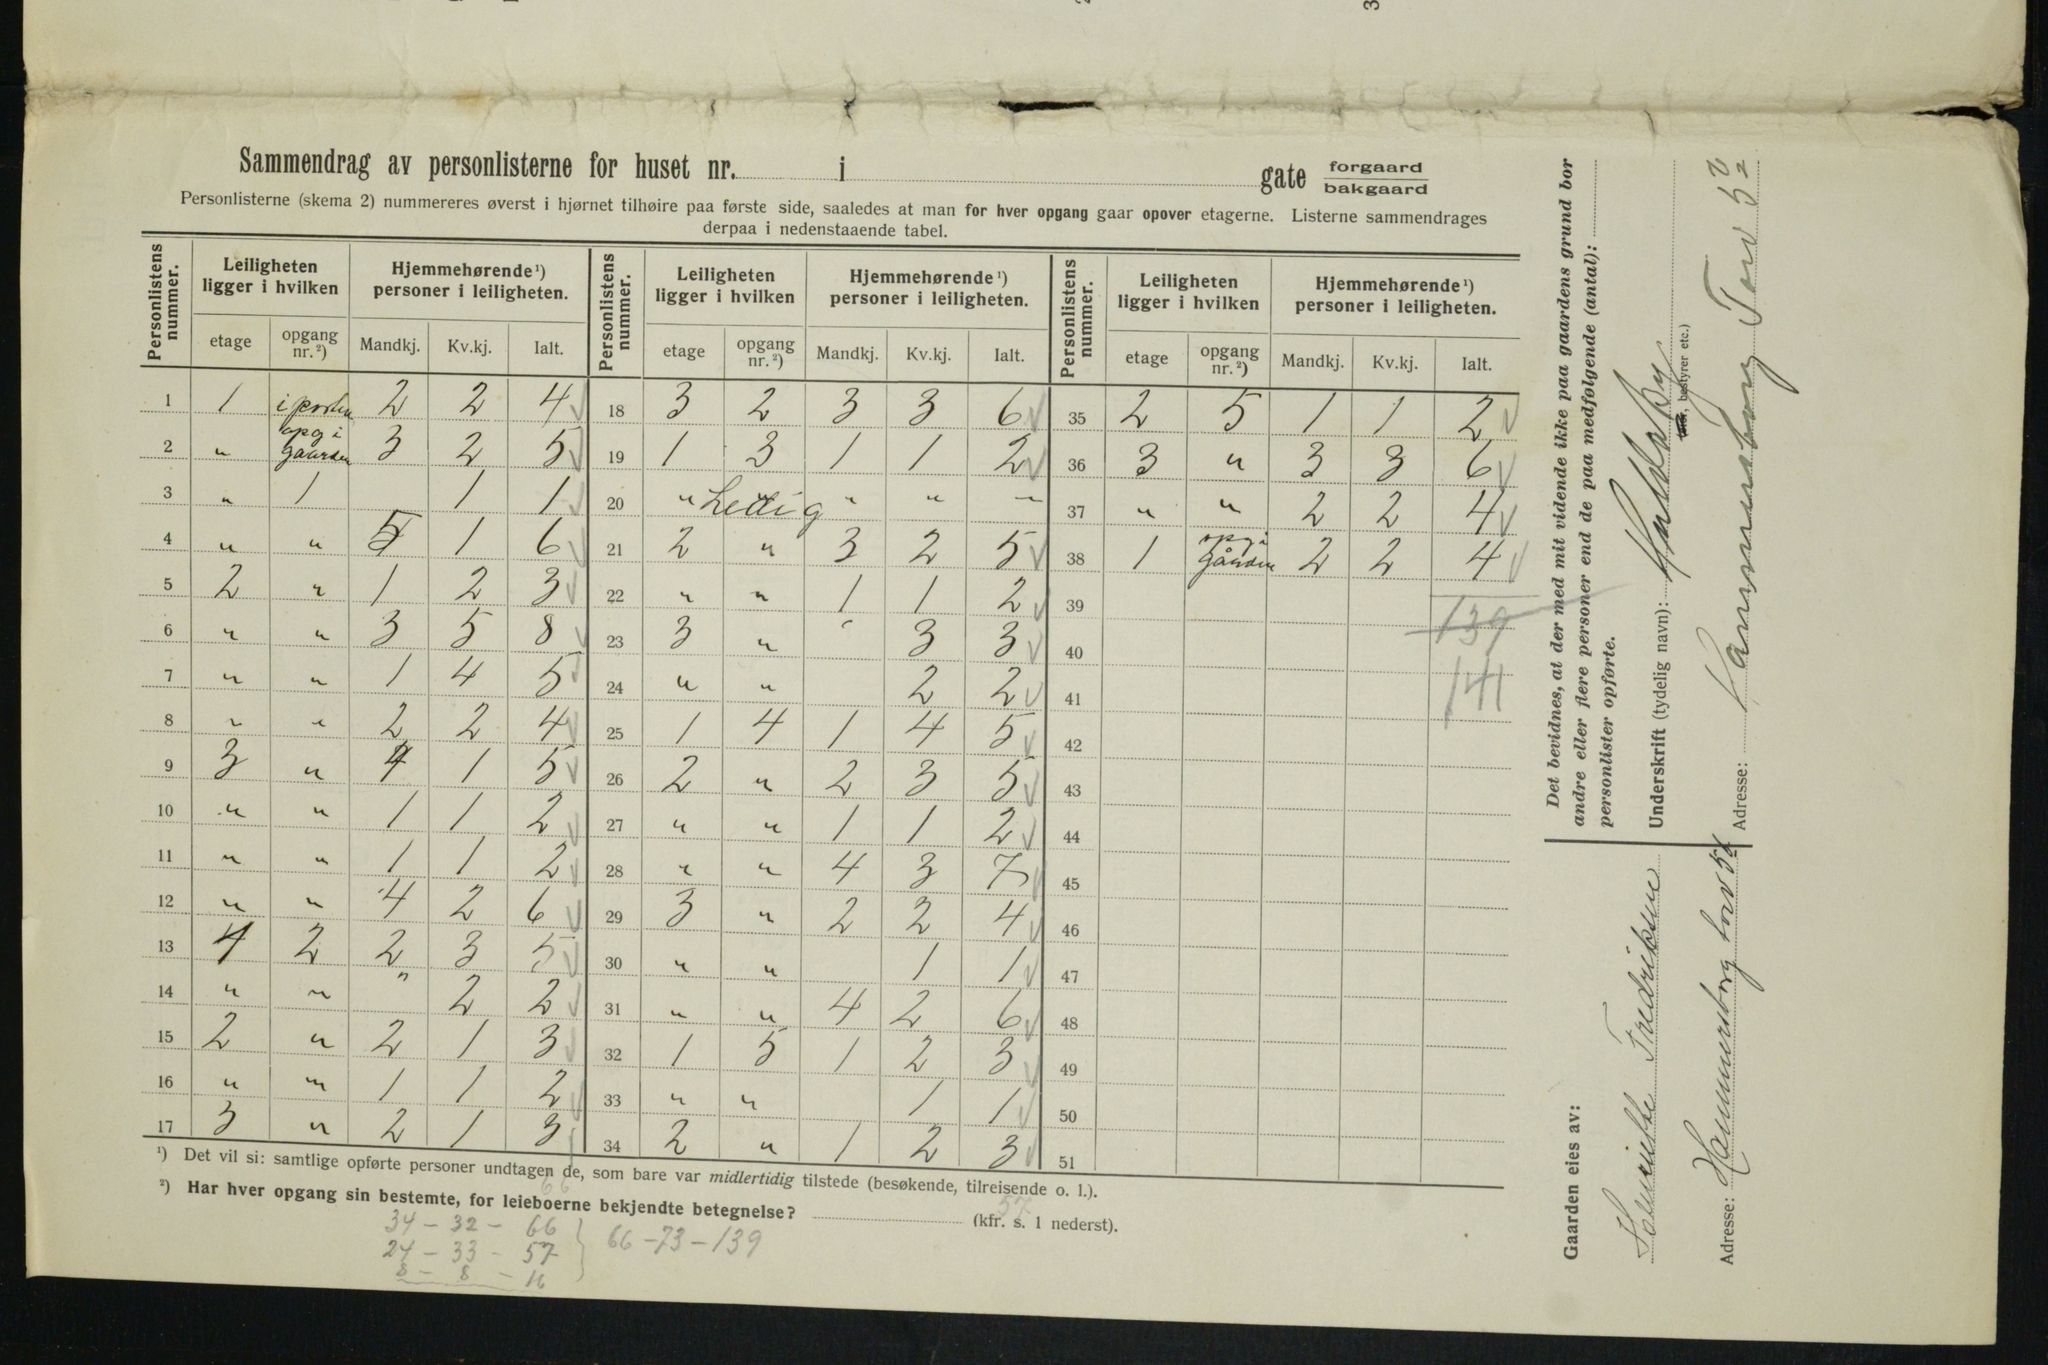 Sammendrag av personlisterne for huset nr. i gate forgaard bakgaard
Personlisterne (skema 2) nummereres øverst i hjørnet tilhøire paa første side, saaledes at man for hver opgang gaar opover etagerne. Listerne sammendrages
derpaa i nedenstaaende tabel.
Personlistens nummer. Leiligheten ligger i hvilken Hjemmehørende ¹) personer i leiligheten. Personlistens nummer. Leiligheten ligger i hvilken Hjemmehørende ¹) personer i leiligheten. Personlistens nummer. Leiligheten ligger i hvilken Hjemmehørende ¹) personer i leiligheten.
etage opgang nr. ²) Mandkj. Kv.kj. Ialt. etage opgang nr. ²) Mandkj. Kv.kj. Ialt. etage opgang nr. ²) Mandkj. Kv.kj. Ialt.
1 1 i porten 2 2 4 18 3 2 3 3 6 35 2 5 1 1 2
2 " opg i Gaarden 3 2 5 19 1 3 1 1 2 36 3 " 3 3 6
3 " 1 1 1 20 " Ledig " " " – 37 " " 2 2 4
4 " " 5 1 6 21 2 " 3 2 5 38 1 opg i Gården 2 2 4
5 2 " 1 2 3 22 " " 1 1 2 39
6 " " 3 5 8 23 3 " 3 3 40 139
7 " " 1 4 5 24 " " 2 2 41 141
8 " " 2 2 4 25 1 4 1 4 5 42
9 3 " 4 1 5 26 2 " 2 3 5 43
10 " " 1 1 2 27 " " 1 1 2 44
11 " " 1 1 2 28 " " 4 3 7 45
12 " " 4 2 6 29 3 " 2 2 4 46
13 4 2 2 3 5 30 " " 1 1 47
14 " " " 2 2 31 " " 4 2 6 48
15 2 " 2 1 3 32 1 5 1 2 3 49
16 " " 1 1 2 33 " " 1 1 50
17 3 " 2 1 3 34 2 " 1 2 3 51
¹) Det vil si: samtlige opførte personer undtagen de, som bare var midlertidig tilstede (besøkende, tilreisende o. l.).
66
²) Har hver opgang sin bestemte, for leieboerne bekjendte betegnelse? (kfr. s. 1 nederst).
57
34 – 32 – 66
24 – 33 – 57
8 – 8 – 16
66 – 73 – 139
Det bevidnes, at der med mit vidende ikke paa gaardens grund bor
andre eller flere personer end de paa medfølgende (antal):
personlister opførte.
Underskrift (tydelig navn):
bestyrer etc.)
Adresse: Hammersborg Torv 5
Gaarden eies av:
Fredriksen
Adresse: Hammersborg torv 5